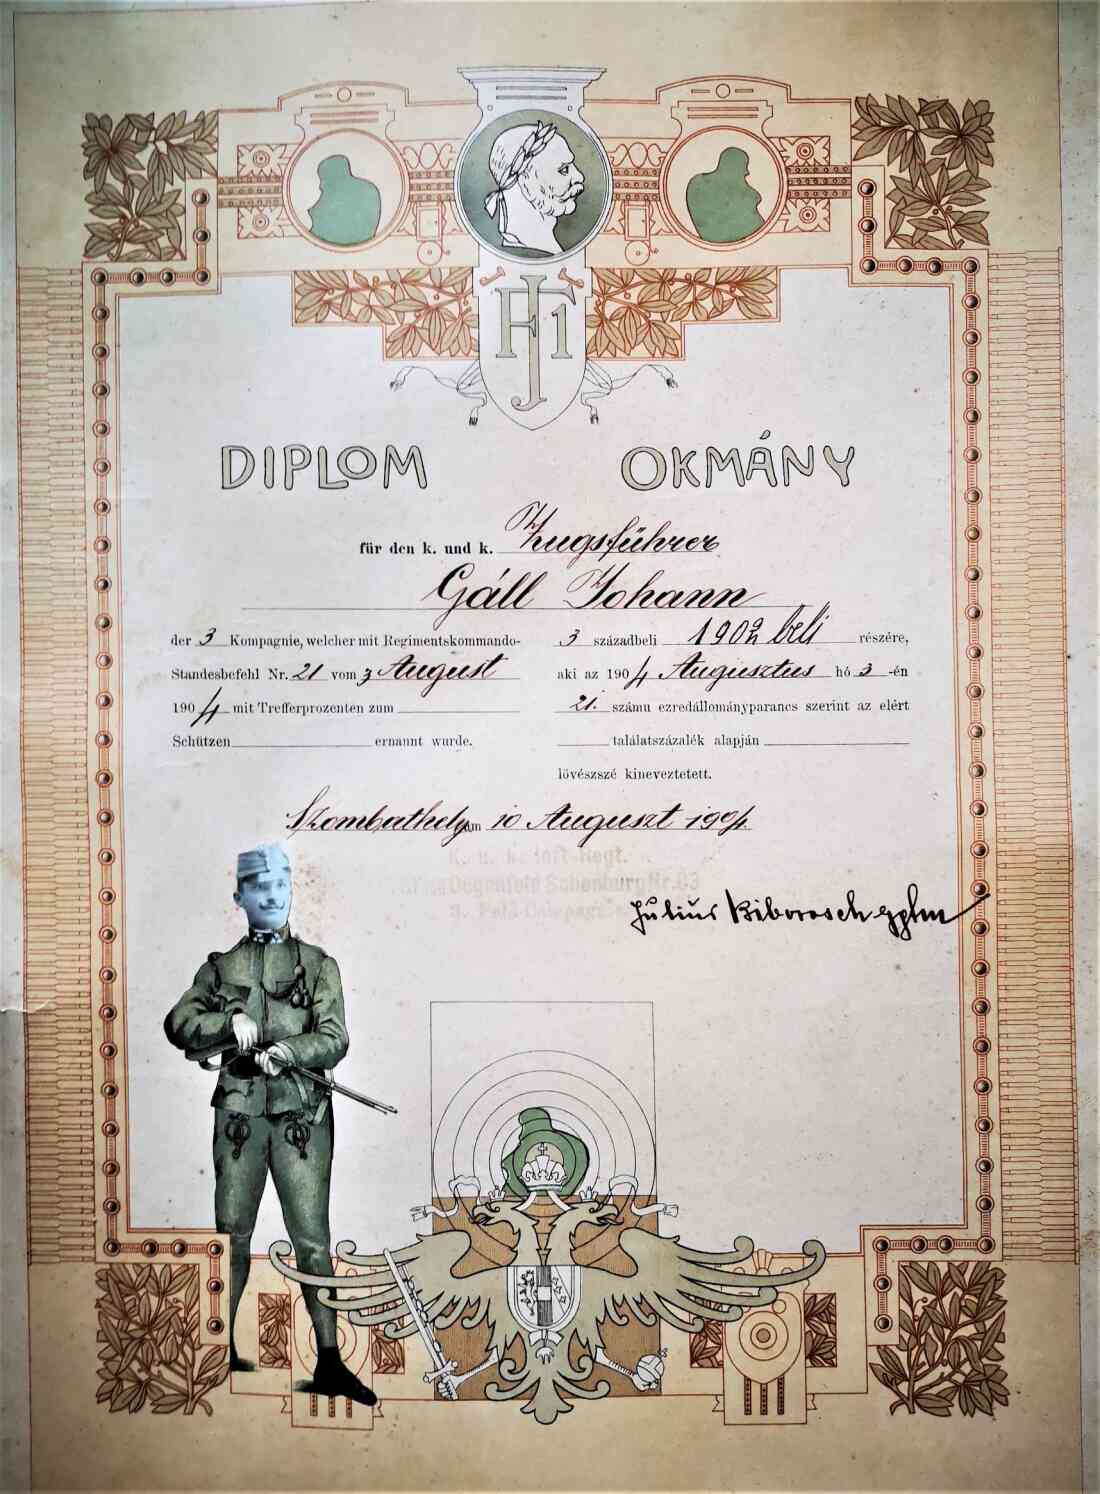 FJ1
DIPLOM OKMÁNY
für den k. und k. Zugsführer
Gáll Johann
der 3 Kompagnie, welcher mit Regimentskommando-
Standesbefehl Nr. 21 vom 3 August
1904 mit Trefferprozenten zum
Schützen ernannt wurde.
3 századbeli 1902 beli részére,
aki az 1904 Augusztus hó 3-én
21. számu ezredállományparancs szerint az elért
találatszázalék alapján
lövészszé kineveztetett.
Szombathely am 10 August 1904.
k. u. k. Inft. Regt.
Degenfeld Schonburg Nr. 83
Feld-Compagnie
Julius